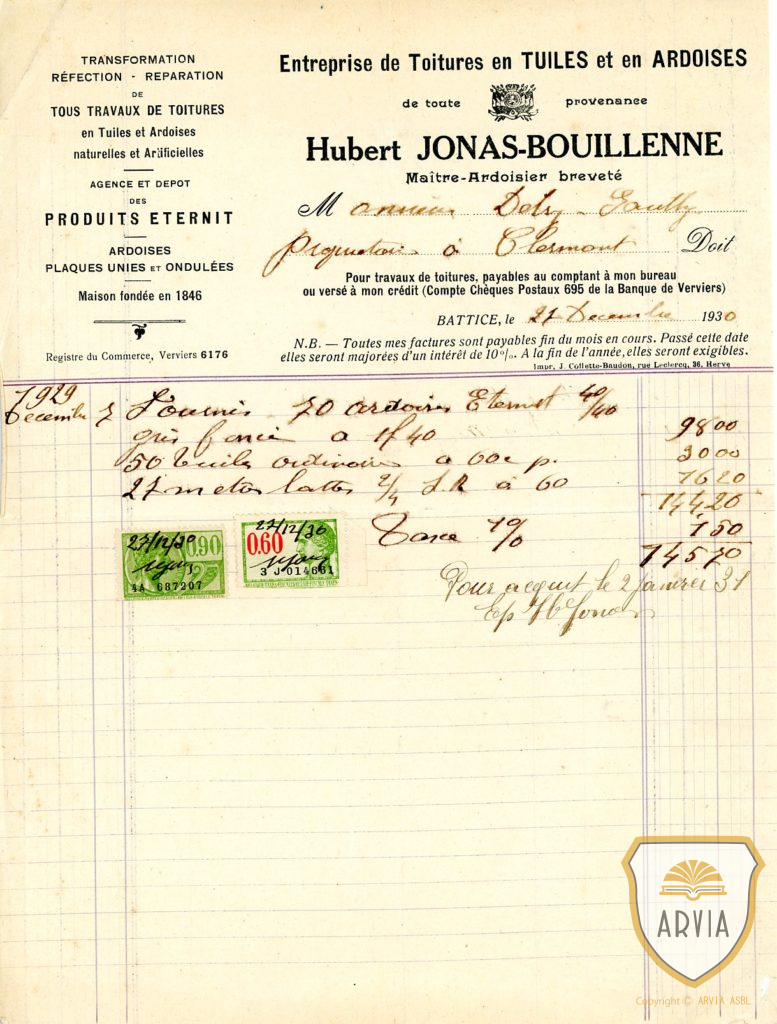 TRANSFORMATION
RÉFECTION - REPARATION
DE
TOUS TRAVAUX DE TOITURES
en Tuiles et Ardoises
naturelles et Artificielles
AGENCE ET DEPOT
DES
PRODUITS ETERNIT
ARDOISES
PLAQUES UNIES ET ONDULÉES
Maison fondée en 1846
Registre du Commerce, Verviers 6176
Entreprise de Toitures en TUILES et en ARDOISES
de toute provenance
Hubert JONAS-BOUILLENNE
Maître-Ardoisier breveté
Monsieur
propriétaire à Clermont Doit
Pour travaux de toitures, payables au comptant à mon bureau
ou versé à mon crédit (Compte Chèques Postaux 695 de la Banque de Verviers)
BATTICE, le 27 Decembre 1930
N.B. — Toutes mes factures sont payables fin du mois en cours. Passé cette date
elles seront majorées d'un intérêt de 10%. A la fin de l'année, elles seront exigibles.
Impr. J. Collette-Baudon, rue Leclercq, 36, Herve
1929
Decembre 7 Fournis 70 ardoises Eternit 40/40
gris foncé à 1f40 98 00
50 tuiles ordinaires a 60c p. 30 00
27 metres lattes 2/4 à 60 16 20
144,20
Taxe 1% 1 50
145 70
27/12/30
0.90
4A 687207
27/12/30
0.60
3 J 014661
Pour acquit le 2 janvier 31
ARVIA
Copyright © ARVIA ASBL